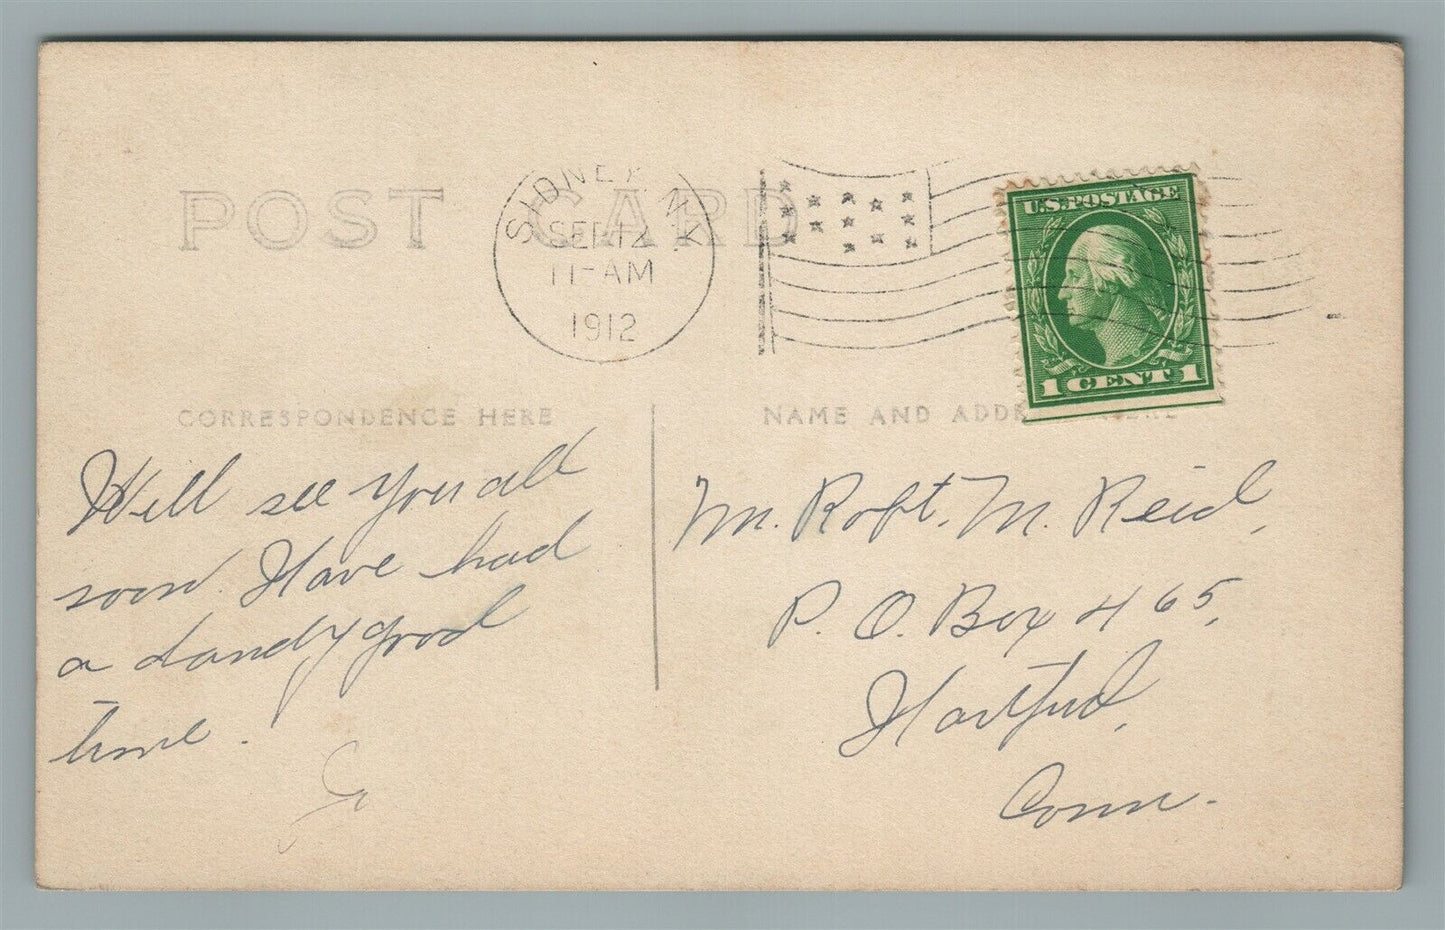 POST CARD
SIDNEY N.Y.
SEP 12
11-AM
1912
U.S. POSTAGE
1 CENT 1
CORRESPONDENCE HERE
NAME AND ADDR HERE
Will see you all
soon. Have had
a dandy good
time.
Mr. Robt. M. Reid,
P. O. Box # 465,
Hartford,
Conn.